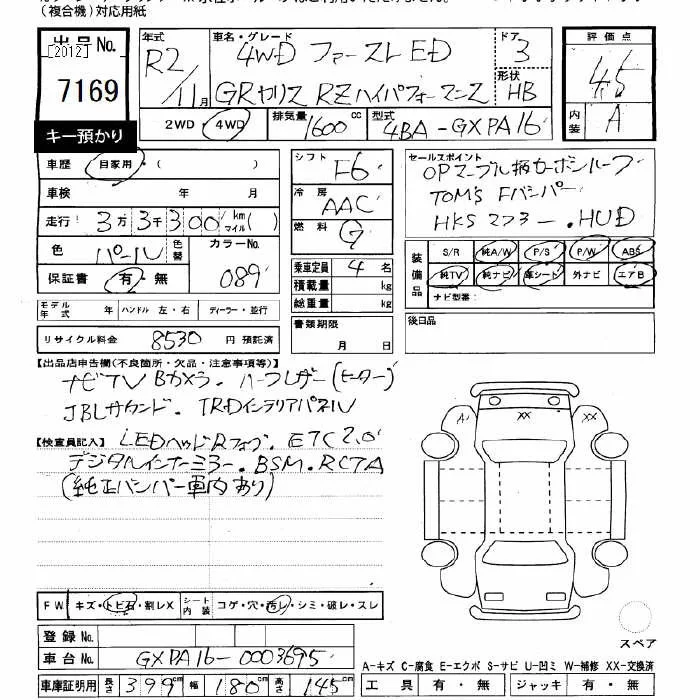 (複合機)対応用紙
出品No.
[2012]
7169
キー預かり
年式 R2/11月
車名・グレード 4WD ファーストED
GRヤリス RZハイパフォーマンス
ドア 3
形状 HB
評価点 4.5
内装 A
2WD・4WD
排気量 1600cc
型式 4BA-GXPA16
車歴 自家用・( )
車検 年 月
走行 3万3千300 km マイル( )
色 パール 色替 カラーNo. 089
保証書 有・無
モデル年式 年 ハンドル 左・右 ディーラー・並行
リサイクル料金 8530円 預託済
シフト F6
冷房 AAC
燃料 G
乗車定員 4名
積載量 kg
総重量 kg
書類期限 月 日
セールスポイント
OPマーブル柄カーボンルーフ
TOM'S Fバンパー
HKS マフラー.HUD
装備品 S/R 純A/W P/S P/W ABS
純TV 純ナビ 革シート 外ナビ エアB
ナビ型番:
後日品
【出品店申告欄(不良箇所・欠品・注意事項等)】
ナビTV Bカメラ.ハーフレザー(ヒーター)
JBLサウンド.TRDインテリアパネル
【検査員記入】 LEDヘッドRフォグ.ETC2.0
デジタルインナーミラー.BSM.RCTA
(純正バンパー車内あり)
A1 XX XX
FW キズ・トビ石・割レX シート内装 コゲ・穴・汚レ・シミ・破レ・スレ
登録No.
車台No. GXPA16-0003695
車庫証明用 長さ 399cm 幅 180cm 高さ 145cm
スペア
A-キズ C-腐食 E-エクボ S-サビ U-凹ミ W-補修 XX-交換済
工具 有・無 ジャッキ 有・無